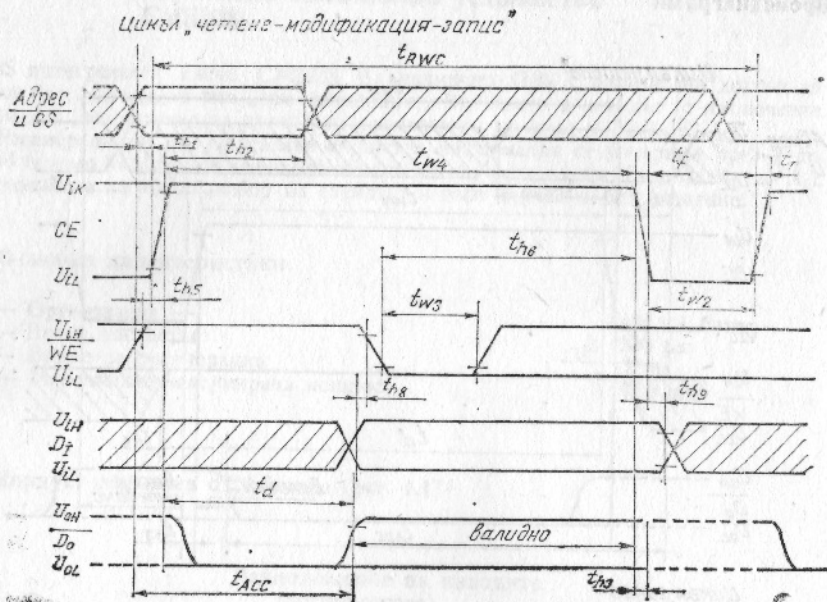 Цикъл „четене-модификация-запис"
tRWC
Адрес
и CS
th1
th2
tW4
tf
tr
UiH
CE
UiL
th6
th5
tW3
tW2
UiH
WE
UiL
th8
th9
UiH
DI
UiL
td
UOH
DO
UOL
валидно
tACC
th3